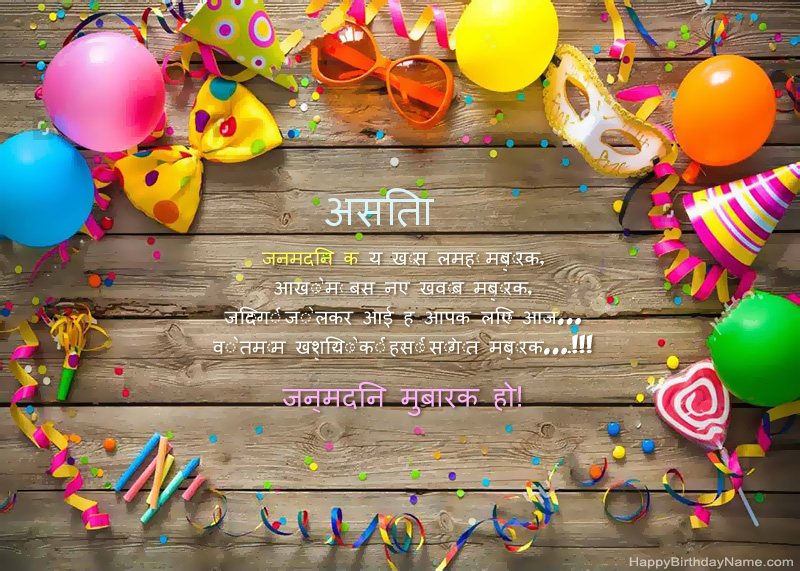 असतिा
जनमदनि क य खास लमह मबारक,
आखों म बस नए खवाब मबारक,
जदिगी जो लकर आई ह आपक लएि आज...
वो तमाम खशयिों की हसी सौगात मबारक...!!!
जन्मदनि मुबारक हो!
HappyBirthdayName.com